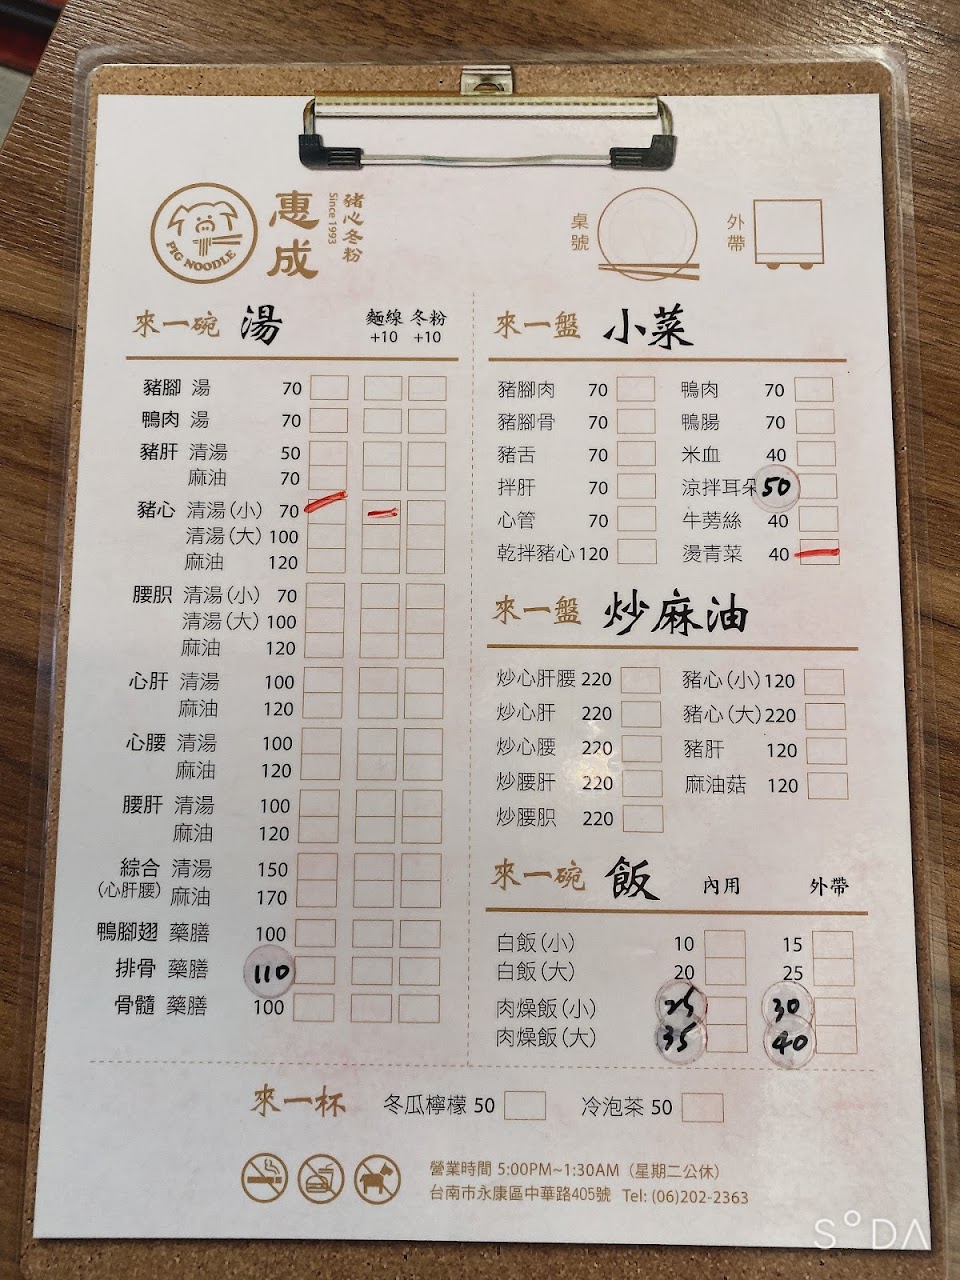 PIG NOODLE
惠成
豬心冬粉
Since 1993
桌號
外帶
來一碗 湯 麵線 +10 冬粉 +10
豬腳 湯 70
鴨肉 湯 70
豬肝 清湯 50
麻油 70
豬心 清湯(小) 70
清湯(大) 100
麻油 120
腰脤 清湯(小) 70
清湯(大) 100
麻油 120
心肝 清湯 100
麻油 120
心腰 清湯 100
麻油 120
腰肝 清湯 100
麻油 120
綜合 清湯 150
(心肝腰) 麻油 170
鴨腳翅 藥膳 100
排骨 藥膳 110
骨髓 藥膳 100
來一盤 小菜
豬腳肉 70 鴨肉 70
豬腳骨 70 鴨腸 70
豬舌 70 米血 40
拌肝 70 涼拌耳朵 50
心管 70 牛蒡絲 40
乾拌豬心 120 燙青菜 40
來一盤 炒麻油
炒心肝腰 220 豬心(小) 120
炒心肝 220 豬心(大) 220
炒心腰 220 豬肝 120
炒腰肝 220 麻油菇 120
炒腰脤 220
來一碗 飯 內用 外帶
白飯(小) 10 15
白飯(大) 20 25
肉燥飯(小) 25 30
肉燥飯(大) 35 40
來一杯 冬瓜檸檬 50 冷泡茶 50
營業時間 5:00PM~1:30AM (星期二公休)
台南市永康區中華路405號 Tel: (06)202-2363
SODA